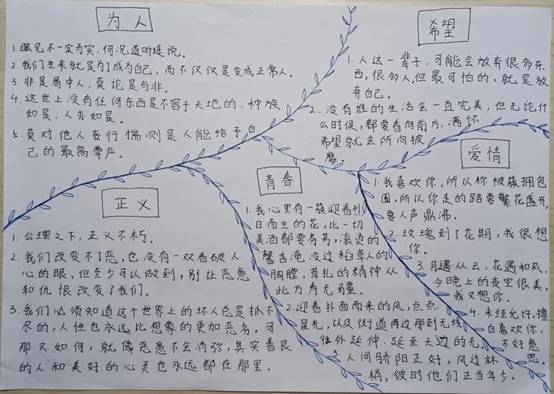 为人
1.眼见不一定为实,何况道听途说。
2.我们生来就是为了成为自己,而不仅仅是变成正常人。
3.非是局中人,莫论是与非。
4.这世上,没有任何东西是不容于天地的,种族
如是,人亦如是。
5.莫对他人妄行揣测是人能给予自
己的最高尊严。
希望
1.人这一辈子,可能会放弃很多东
西,很多人,但最可怕的,就是放
弃自己。
2.没有谁的生活会一直完美,但无论什
么时候,都要看向前方,满怀
希望就会所向披
靡。
正义
1.公理之下,正义不朽。
2.我们改变不了恶,也没有一双看破人
心的眼,但至少可以做到,别让恶意
和仇恨改变了我们。
3.我们必须知道这个世界上的坏人总是抓不
尽的,人性也永远比想象的更加恶劣。可
那又如何,就像恶意不会消弥,其实善良
的人和美好的心灵也永远都在那里。
青春
1.我心里有一簇迎着烈
日而生的花,比一切
美酒都要芬芳,滚烫的
馨香淹没过稻草人的
胸膛,草扎的精神从
此万寿无疆。
2.迎着扑面而来的风,点点
星光,以及街道两边那到无线
往外延伸,延至天边的光。
3.人间骄阳正好,风过林
梢,彼时他们正当年少。
爱情
1.我喜欢你,所以你被簇拥包
围,所以你走的路要繁花盛开,
要人声鼎沸。
2.玫瑰到了花期,我很想
你。
3.月遇从云,花遇和风,
今晚上的夜空很美,
我又想你。
4.未经允许,擅
自喜欢你,
不好意
思。